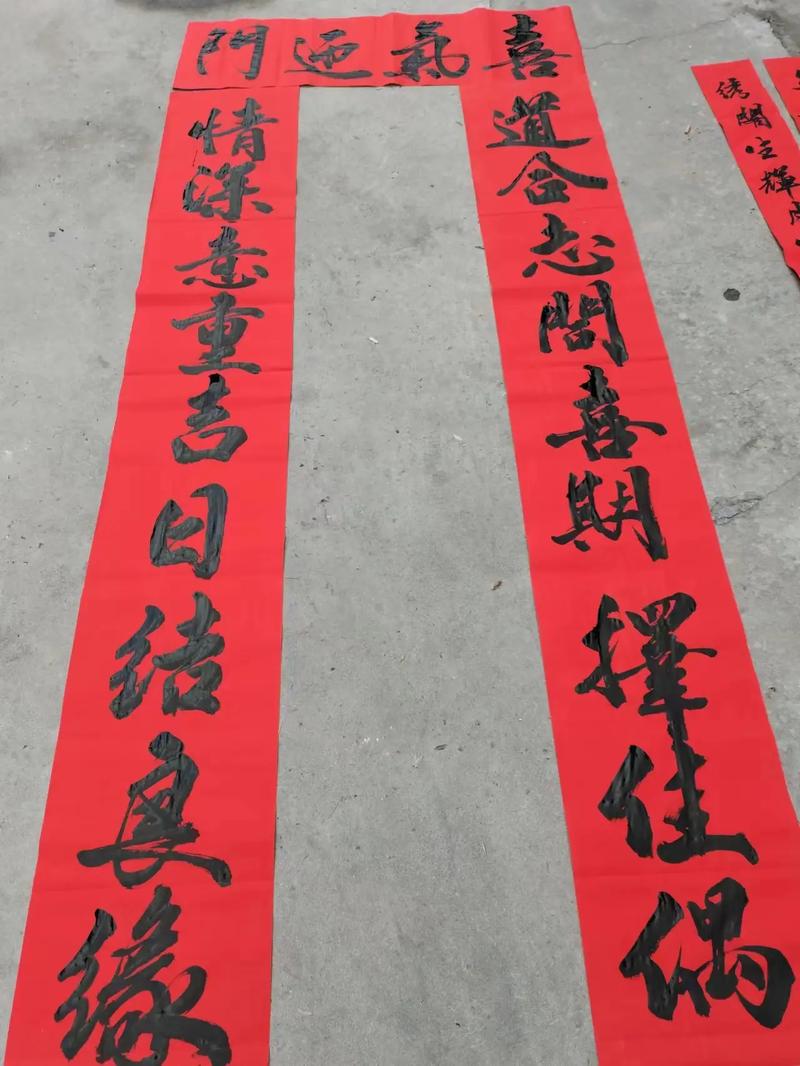 喜氣迎門
道合志同喜期擇佳偶
情深意重吉日结良缘
绣閣生輝